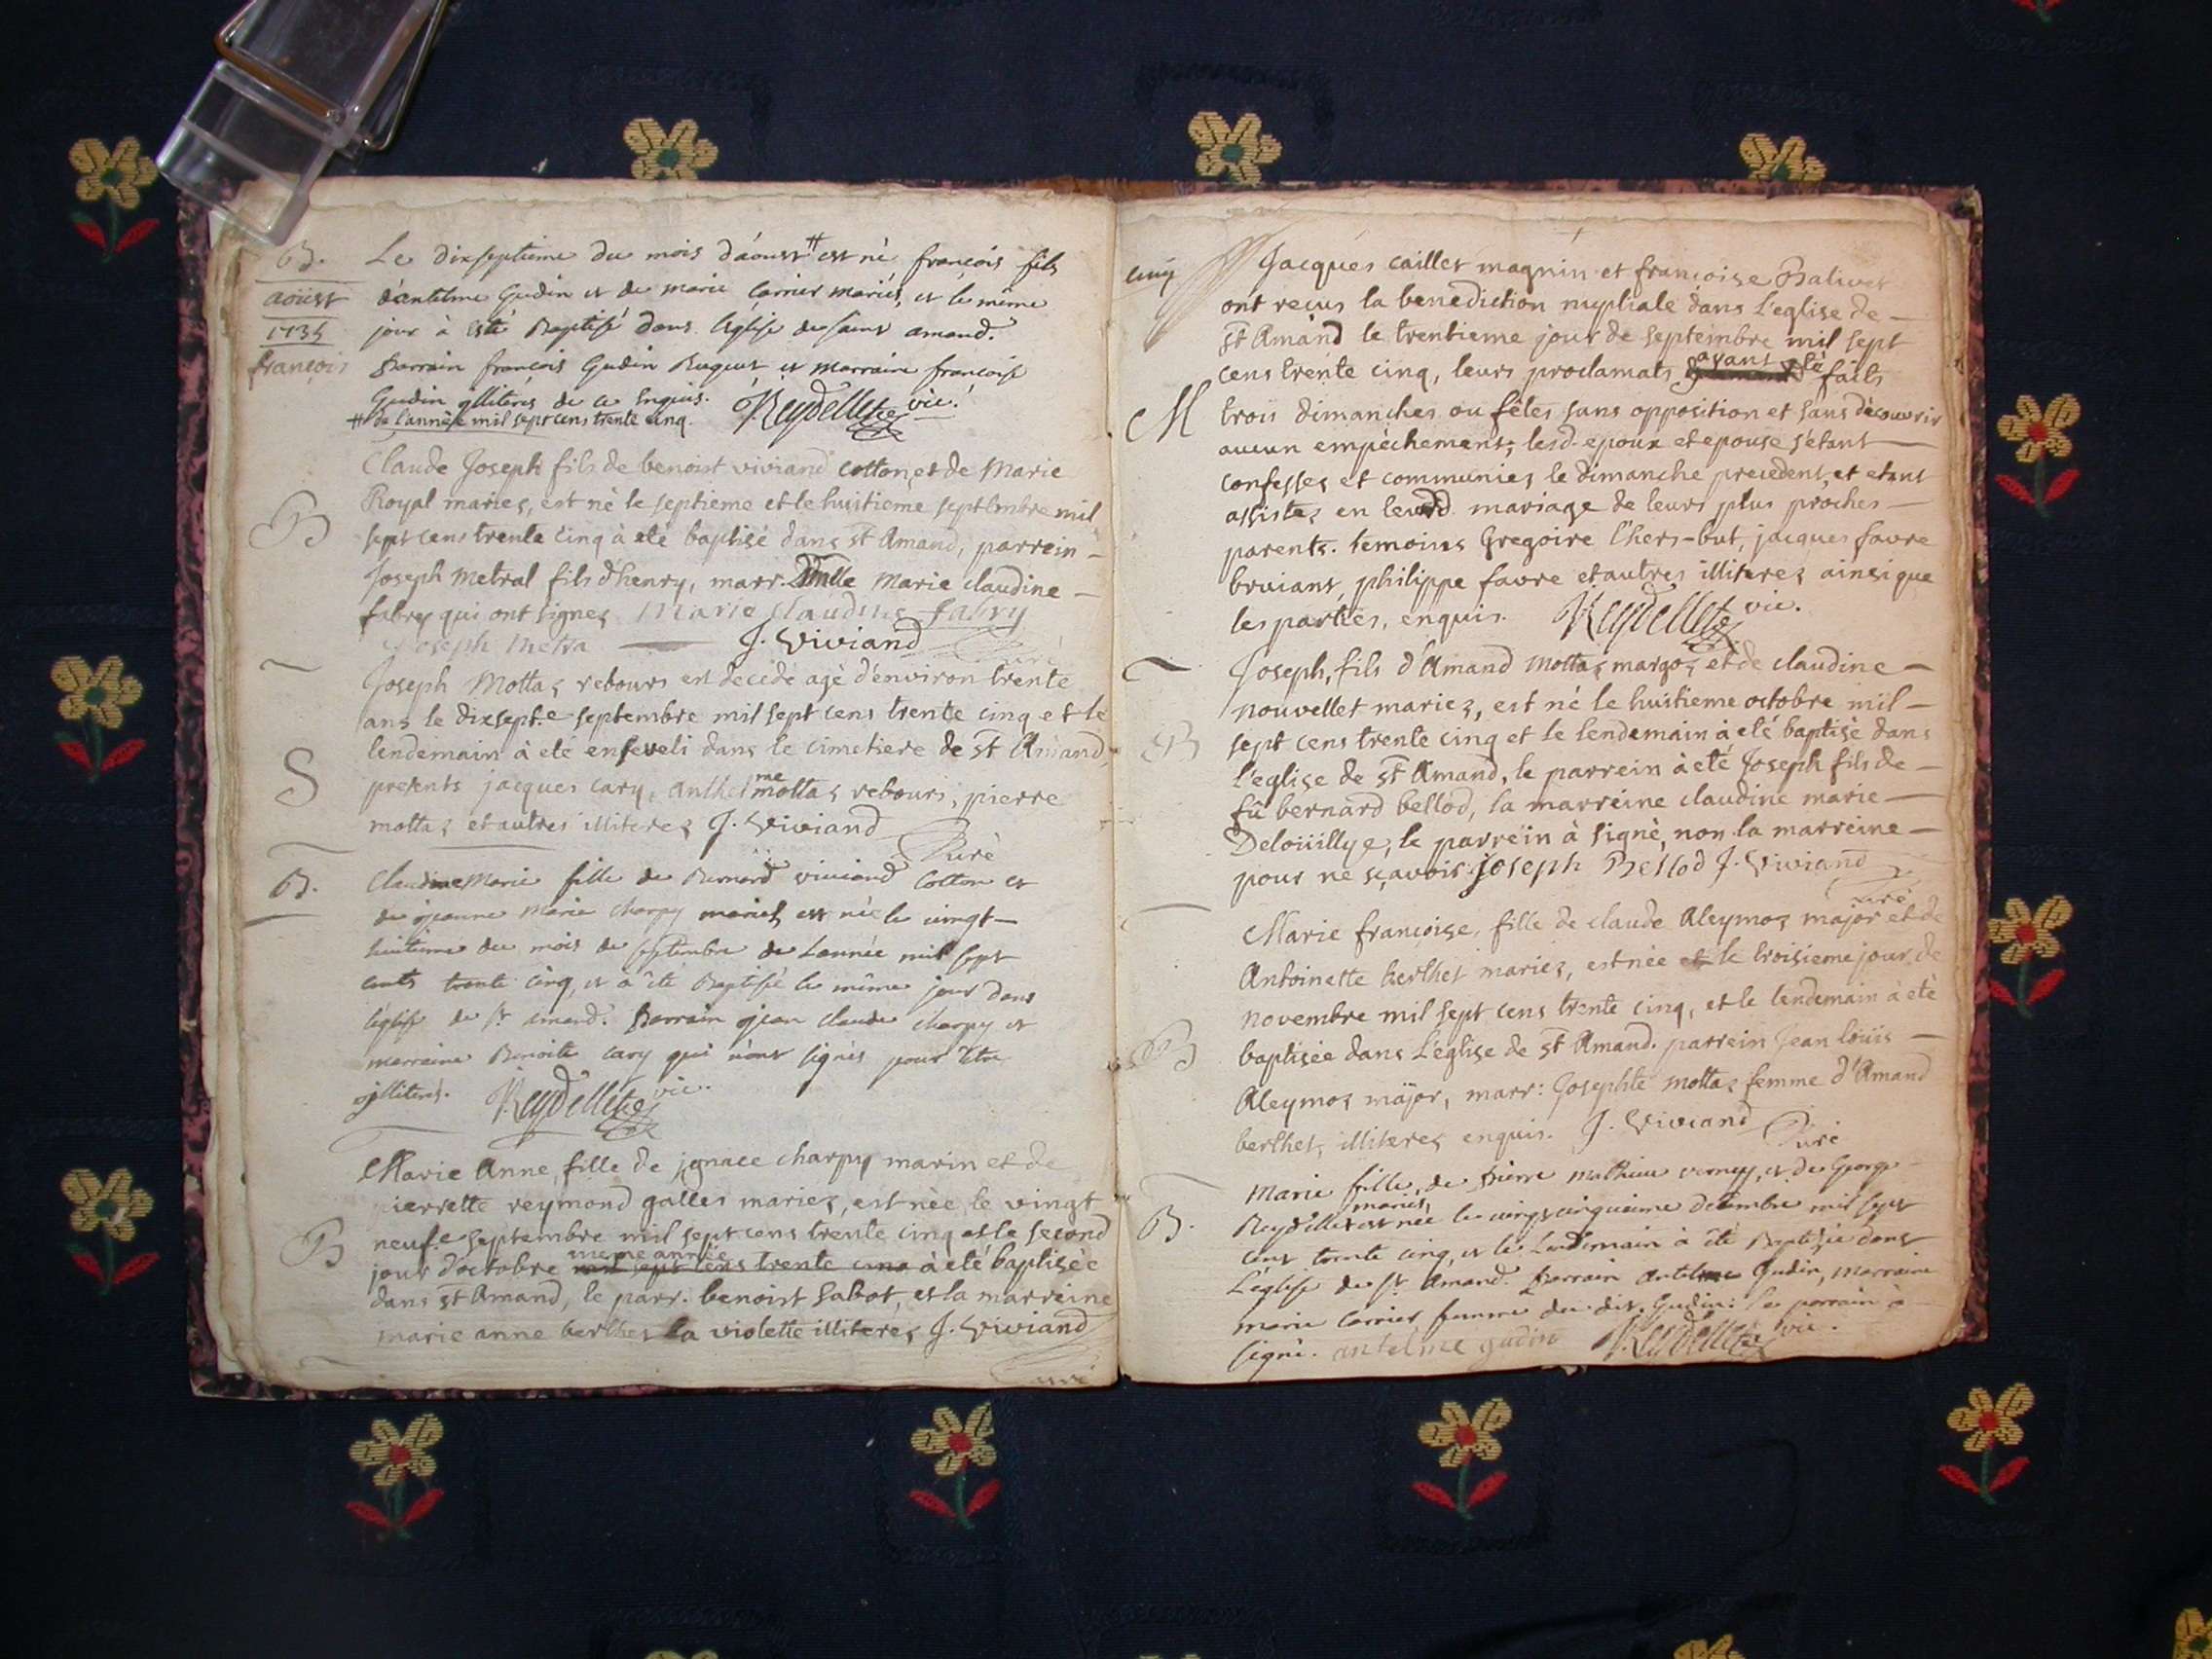 B.
aoûst
1735
françois
Le dixseptieme du mois d'áoust # est né françois fils
d'antelme Gudin et de marie Carrier mariés, et le même
jour à esté Baptisé dans l'église de saint amand.
Parrain françois Gudin et marraine françoise
Gudin jllitérés de ce Enquis. Reydellet vic.
# de l'année mil sept cens trente cinq.
B
Claude Joseph fils de benoist viviand cotton et de Marie
Royal mariez, est nè le septieme et le huitieme septembre mil
sept cens trente cinq à eté baptisé dans st Amand, parrein –
Joseph Metral fils d'henry, marr. Dlle Marie claudine –
fabry qui ont signez Marie Claudine fabry
Joseph Metra J. Viviand
Curé
S
Joseph Mottaz rebours est decedé agé d'environ trente
ans le dixsept.e septembre mil sept cens trente cinq et le
lendemain à eté enseveli dans le cimetiere de st Amand,
presents jacques cary, anthelme mottaz rebours, pierre
mottaz et autres illiterez J. Viviand
Curè
B.
Claudine Marie fille de Bernard viviand Cotton et
de jeanne Marie charpy mariés est née le vingt –
huitieme du mois de septembre de l'année mil sept
cents trente cinq, et à été Baptisée le même jour dans
l'église de st amand. Parrain jean Claude charpy et
marraine Benoite cary qui n'ont signés pour être
jlliterés. Reydellet vic.
B
Marie Anne, fille de jgnace charpy marin et de
pierrette reymond galles mariez, est née le vingt
neuf.e septembre mil sept cens trente cinq et le second
jour d'octobre meme année mil sept cens trente cinq à eté baptisée
dans st Amand, le parr. benoist Sabot, et la marreine
marie anne berthet la violette illiterez J. Viviand
Curé
cinq
M
Jacques caillet magnin et françoise Balivet
ont reçus la benediction nuptiale dans l'eglise de –
st Amand le trentieme jour de septembre mil sept
cens trente cinq, leurs proclamats ayant eté faits
trois dimanches ou fêtes sans opposition et sans découvrir
aucun empêchement; lesd. epoux et epouse s'étant –
confessez et communiez le dimanche precedent, et etant
assistez en leurd. mariage de leurs plus proches –
parents. temoins Gregoire l'hers-but, jacques favre
bruiant, philippe favre et autres illiterez ainsi que
les parties, enquis. Reydellet vic.
B
Joseph, fils d'Amand Mottaz margoz et de claudine –
nouvellet mariez, est né le huitieme octobre mil –
sept cens trente cinq et le lendemain à eté baptisé dans
l'eglise de st Amand, le parrein à eté Joseph fils de –
fû bernard bellod, la marreine claudine marie –
Deloüillye, le parrein à signé, non la marreine –
pour ne sçavoir. joseph Bellod J. Viviand
Curé
B
Marie françoise, fille de claude Aleymoz major et de
Antoinette berthet mariez, est née et le troisieme jour de
novembre mil sept cens trente cinq, et le lendemain à eté
baptisée dans l'eglise de st Amand. parrein Jean loüis –
Aleymoz major, marr: Josephte mottaz femme d'Amand
berthet, illiterez enquis. J. Viviand
Curé
B.
Marie fille de Pierre Mathieu verney, et de George
Reydellet mariés, est née le vingtcinquieme decembre mil sept
cent trente cinq, et le Lendemain à été Baptizée dans
L'église de st Amand. Parrain Antelme Gudin, Marraine
marie Carrier femme du dit. Gudin: le parrain à
signé. antelme gudin Reydellet vic.